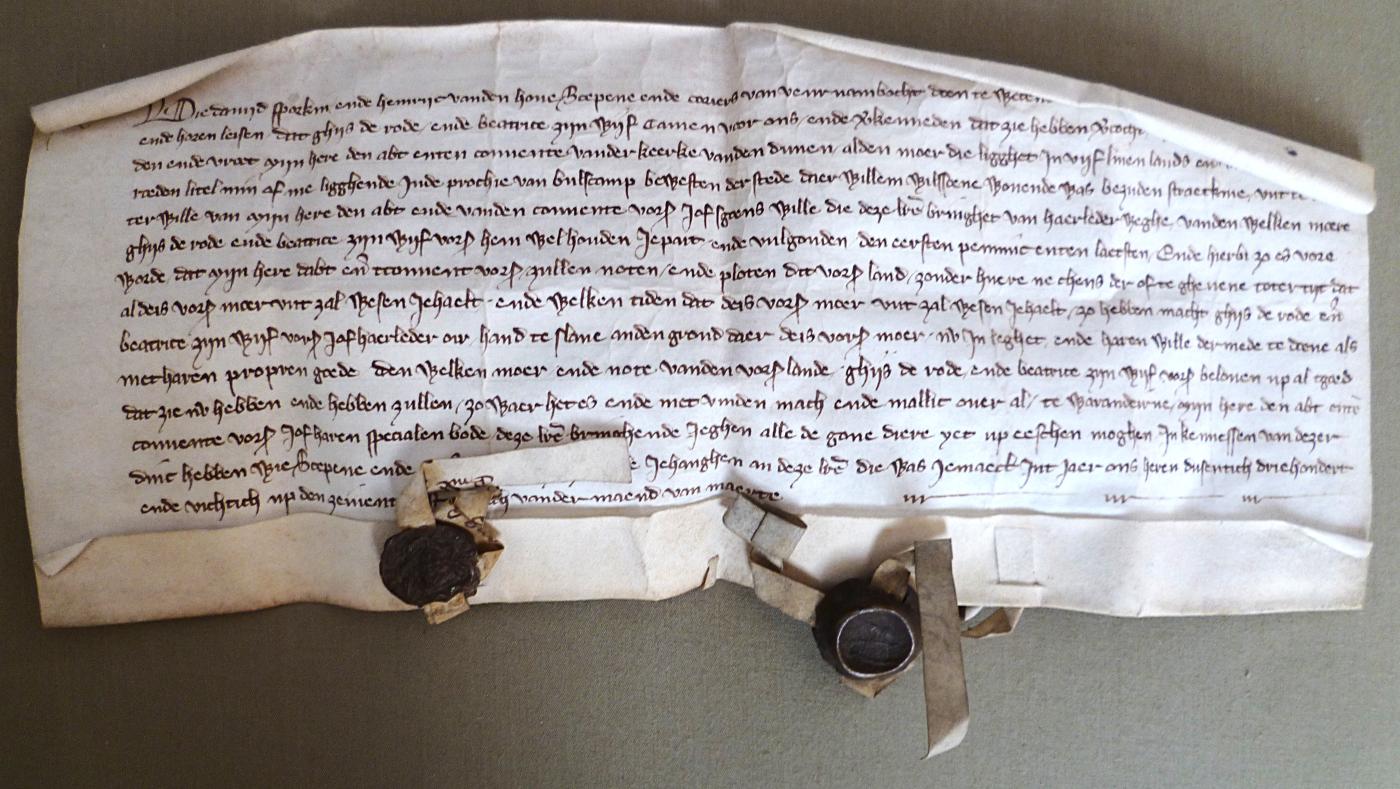 Wie dauid sporkin ende heinric vanden houe Scepene ende coriers van veurnambocht doen te weten
ende horen lesen dat ghijs de rode ende beatrice zijn wijf Camen voor ons ende kenneden dat zie hebben vcocht
den ende vrat mijn here den abt enten conuente vander keerke vanden dunen alden moer die ligghet in vijf linen lands
roeden litel min of me ligghende Inde prochie van bulscamp bewesten der stede daer willem wilssoene wonende was bezuden straetkine
ter wille van mijn here den abt ende vanden conuente vors Jof sgoens wille die deze lre bringhet van haerleder weghe vanden welken moere
ghijs de rode ende beatrice zijn wijf vors hem wel houden Jepait ende vulgonden den eersten penninc enten laetsten Ende hierbi zo es vore
worde dat mijn here dabt en tconuent vors zullen noten ende ploten dit vors land zonder huere ne chens der of te gheuene toter tijt dat
al deis vors moer vut zal wesen Jehaelt ende welken tiden dat deis vors moer vut zal wesen Jehaelt zo hebben macht ghijs de rode en
beatrice zijn wijf vors Jof haerleder oir hand te slane anden grond daer deis vors moer nv In leghet ende haren wille der mede te doene als
met haren propren goede den welken moer ende note vanden vors lande ghijs de rode ende beatrice zijn wijf vors belouen up al tgoed
dat zie nv hebben ende hebben zullen zo waer het es ende met vinden mach ende mallic ouer al te warandeirne mijn here den abt
conuente vors Jof haren specialen bode deze lre bringhende Jeghen alle de gone diere yet up eesschen moghen In kennessen van dezer
dinc hebben wie Scepene ende Jehanghen an deze lre die was Jemaect Int Jaer ons heren dusentich driehondert
ende vichtich up den zeuent vander maend van maerte